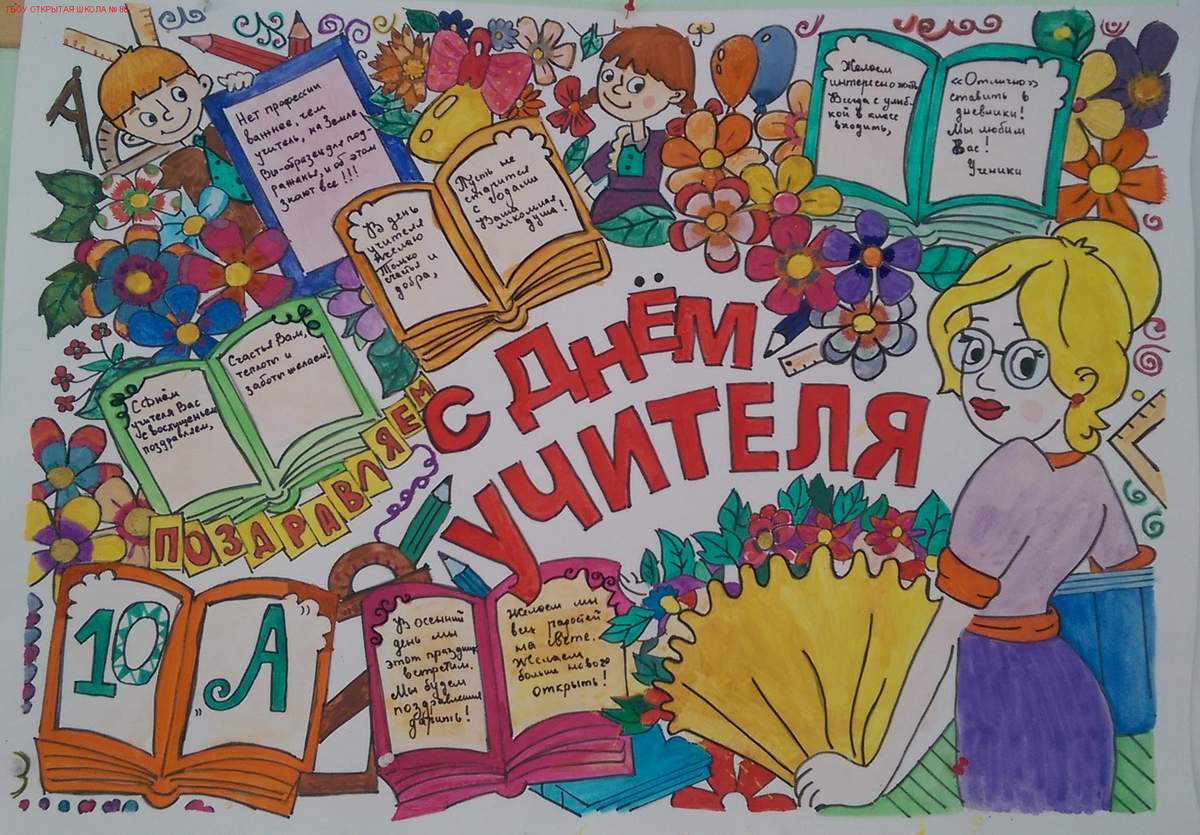 ГБОУ ОТКРЫТАЯ ШКОЛА № 88
Нет профессии
важнее, чем
учитель, на Земле
Вы-образец для под-
ражанья, и об этом
знают все!!!
В день
учителя
желаю
Только
счастья и
добра,
Пусть не
старится
с годами
Ваша
душа!
Желаем
интересно жить
Всегда с улыб-
кой в класс
входить,
«Отлично»
ставить в
дневники!
Мы любим
Вас!
Ученики
С Днём
учителя Вас
с восхищеньем
поздравляем,
Счастья Вам,
теплоты и
заботы желаем!
ПОЗДРАВЛЯЕМ
С ДНЁМ
УЧИТЕЛЯ
10 „А”
В осенний
день мы
этот праздник
встретим.
Мы будем
поздравления
дарить!
Желаем мы
всех радостей
на свете.
Желаем
больше нового
открыть!